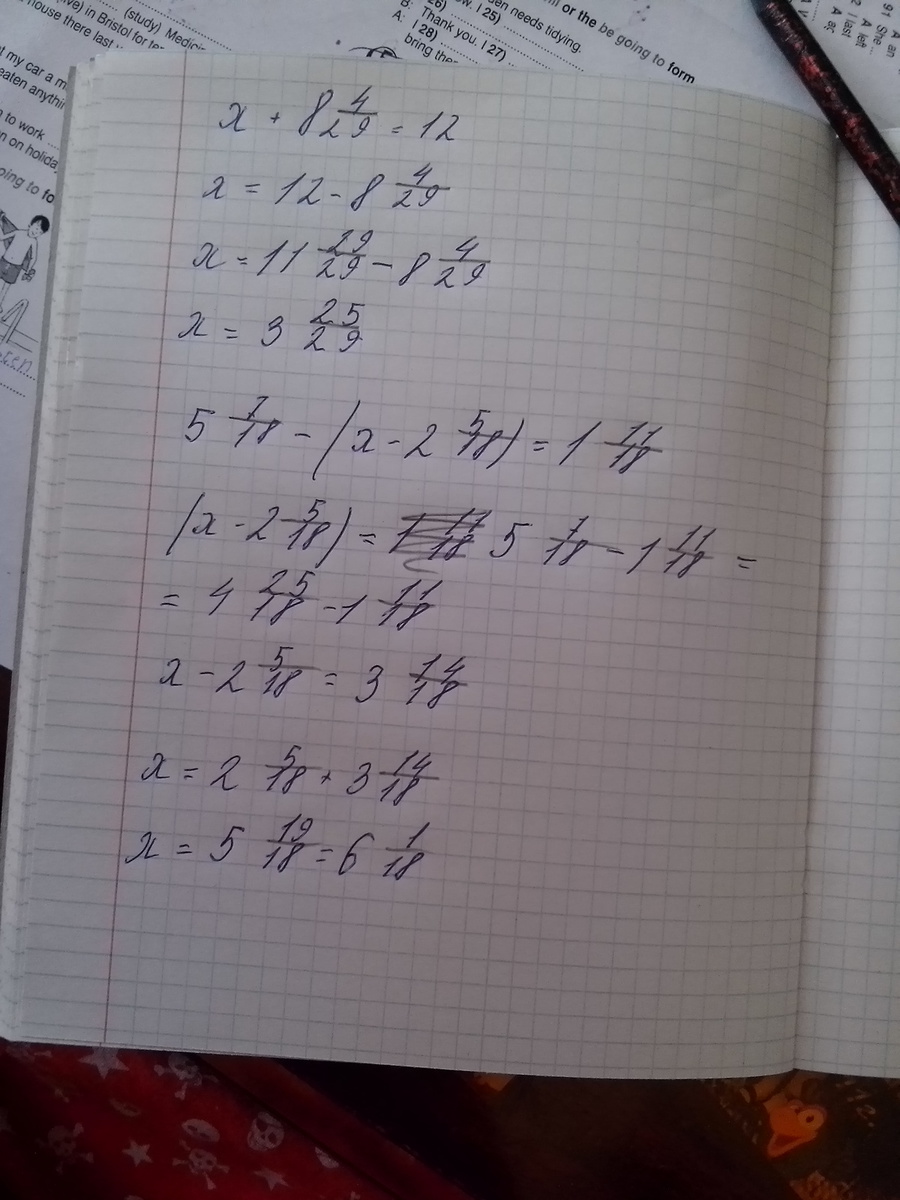 (study) Medicin
ive) in Bristol for ten
house there last
t my car a m
eaten anythin
n to work
n on holida
oing to fo
26)
B: Thank you. I 27)
A: I 28)
bring the
ow. I 25)
den needs tidying.
or the be going to form
91 A an
She...
2 A left
last
x + 8 4/29 = 12
x = 12 - 8 4/29
x = 11 29/29 - 8 4/29
x = 3 25/29
5 7/18 - (x - 2 5/18) = 1 11/18
(x - 2 5/18) = 5 7/18 - 1 11/18 =
= 4 25/18 - 1 11/18
x - 2 5/18 = 3 14/18
x = 2 5/18 + 3 14/18
x = 5 19/18 = 6 1/18